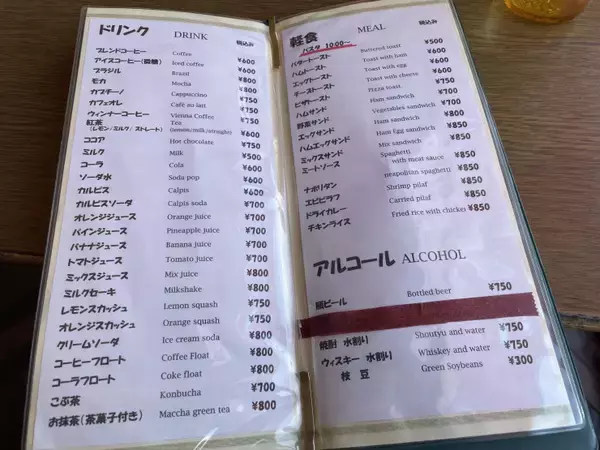 ドリンク DRINK 税込み
ブレンドコーヒー Coffee ¥600
アイスコーヒー(微糖) Iced coffee ¥600
ブラジル Brazil ¥600
モカ Mocha ¥800
カプチーノ Cappuccino ¥750
カフェオレ Café au lait ¥750
ウィンナーコーヒー Vienna Coffee ¥750
紅茶 Tea
(レモン/ミルク/ストレート) (lemon/milk/straight) ¥600
ココア Hot chocolate ¥750
ミルク Milk ¥500
コーラ Cola ¥600
ソーダ水 Soda pop ¥600
カルピス Calpis ¥600
カルピスソーダ Calpis soda ¥700
オレンジジュース Orange juice ¥700
パインジュース Pineapple juice ¥700
バナナジュース Banana juice ¥700
トマトジュース Tomato juice ¥700
ミックスジュース Mix juice ¥800
ミルクセーキ Milkshake ¥800
レモンスカッシュ Lemon squash ¥750
オレンジスカッシュ Orange squash ¥750
クリームソーダ Ice cream soda ¥800
コーヒーフロート Coffee Float ¥800
コーラフロート Coke float ¥800
こぶ茶 Konbucha ¥700
お抹茶(茶菓子付き) Maccha green tea ¥800
軽食 MEAL 税込み
パスタ 10:00〜
バタートースト Buttered toast ¥500
ハムトースト Toast with ham ¥600
エッグトースト Toast with egg ¥600
チーストースト Toast with cheese ¥600
ピザトースト Pizza toast ¥750
ハムサンド Ham sandwich ¥750
野菜サンド Vegetables sandwich ¥750
エッグサンド Ham sandwich ¥750
ハムエッグサンド Ham Egg sandwich ¥850
ミックスサンド Mix sandwich ¥850
ミートソース Spaghetti with meat sauce ¥850
ナポリタン neapolitan spaghetti ¥850
エビピラフ Shrimp pilaf ¥850
ドライカレー Carried pilaf ¥850
チキンライス Fried rice with chicken ¥850
アルコール ALCOHOL
瓶ビール Bottled beer ¥750
焼酎 水割り Shoutyu and water ¥750
ウィスキー 水割り Whiskey and water ¥750
枝 豆 Green Soybeans ¥300